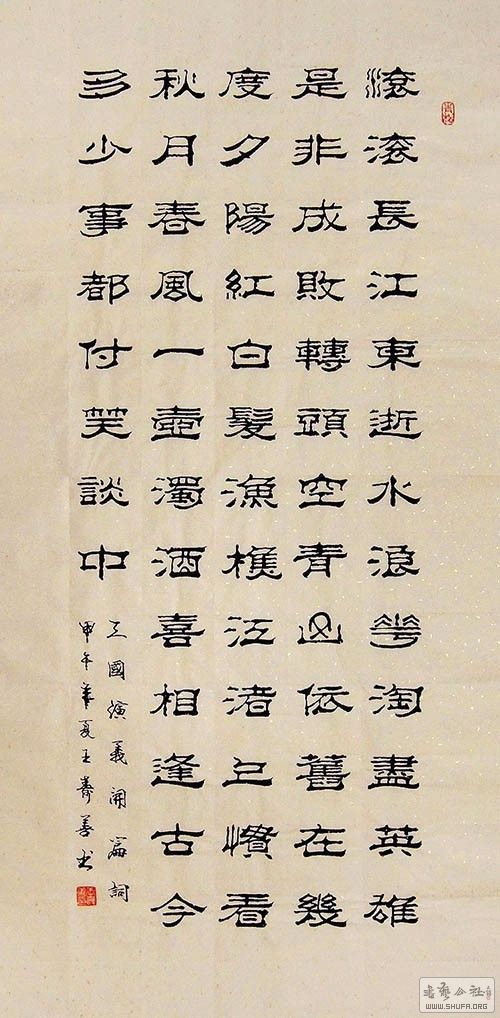 滚滚長江東逝水浪花淘盡英雄
是非成敗轉頭空青山依舊在幾
度夕陽紅白髮漁樵江渚上慣看
秋月春風一壺濁酒喜相逢古今
多少事都付笑談中
三國演義開篇詞
甲午年夏王壽善书
書藝公社
WWW.SHUFA.ORG